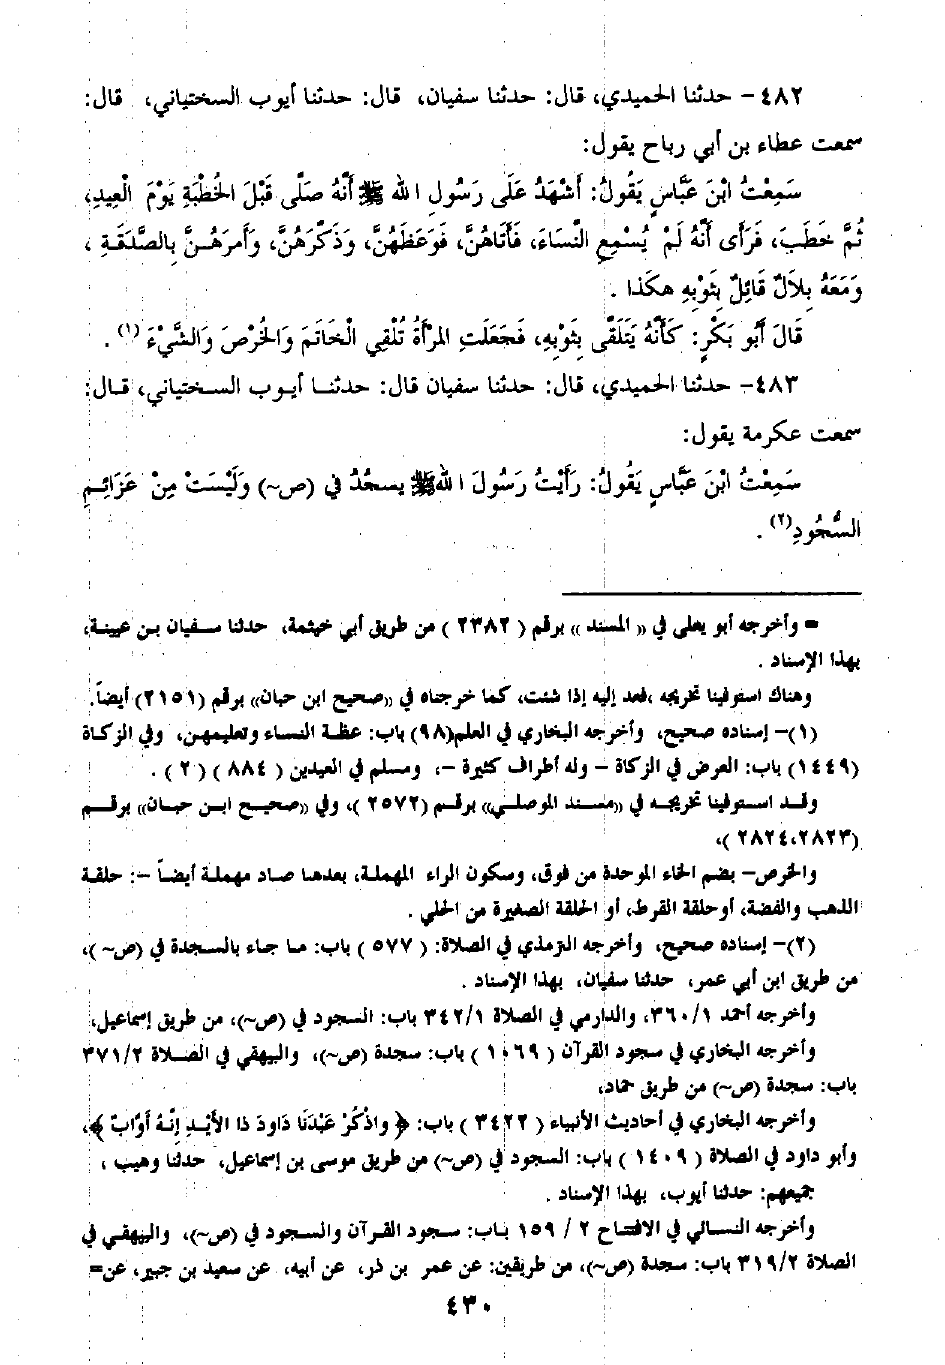 ٤٨٢- حدثنا الحميدي، قال: حدثنا سفيان، قال: حدثنا أيوب السختياني، قال:
سمعت عطاء بن أبي رباح يقول:
سَمِعْتُ ابْنَ عَبَّاسٍ يَقُولُ: أَشْهَدُ عَلَى رَسُولِ اللهِ ﷺ أَنَّهُ صَلَّى قَبْلَ الخُطْبَةِ يَوْمَ الْعِيدِ،
ثُمَّ خَطَبَ، فَرَأَى أَنَّهُ لَمْ يُسْمِعِ النِّسَاءَ، فَأَتَاهُنَّ، فَوَعَظَهُنَّ، وَذَكَّرَهُنَّ، وَأَمرَهُنَّ بِالصَّدَقَةِ ،
وَمَعَهُ بِلاَلٌ قَائِلٌ بِثَوْبِهِ هكَذا .
قَالَ أَبُو بَكْرٍ: كَأَنَّهُ يَتَلَقَّى بِثَوْبِهِ، فَجَعَلَتِ المَرْأَةُ تُلْقِي الْخَاتَمَ وَالخُرْصَ وَالشَّيْءَ (١) .
٤٨٣- حدثنا الحميدي، قال: حدثنا سفيان قال: حدثنا أيوب السختياني، قال:
سمعت عكرمة يقول:
سَمِعْتُ ابْنَ عَبَّاسٍ يَقُولُ: رَأَيْتُ رَسُولَ اللهِ ﷺ يسجُدُ في (ص~) وَلَيْسَتْ مِنْ عَزَائِمِ
السُّجُودِ(٢) .
= وأخرجه أبو يعلى في « المسند » برقم ( ٢٣٨٢ ) من طريق أبي خيثمة، حدثنا سفيان بن عيينة،
بهذا الإسناد .
وهناك استوفينا تخريجه ،فعد إليه إذا شئت، كما خرجناه في «صحيح ابن حبان» برقم (٢١٥١) أيضاً.
(١)- إسناده صحيح، وأخرجه البخاري في العلم(٩٨) باب: عظة النساء وتعليمهن، وفي الزكاة
(١٤٤٩) باب: العرض في الزكاة - وله أطراف كثيرة -، ومسلم في العيدين ( ٨٨٤ ) ( ٢ ) .
وقد استوفينا تخريجه في «مسند الموصلي» برقم (٢٥٧٢ )، وفي «صحيح ابن حبان» برقم
(٢٨٢٣،٢٨٢٤ )،
والخرص- بضم الخاء الموحدة من فوق، وسكون الراء المهملة، بعدها صاد مهملة أيضاً -: حلقة
الذهب والفضة، أوحلقة القرط، أو الحلقة الصغيرة من الحلي .
(٢)- إسناده صحيح، وأخرجه الترمذي في الصلاة: ( ٥٧٧ ) باب: ما جاء بالسجدة في (ص~ )،
من طريق ابن أبي عمر، حدثنا سفيان، بهذا الإسناد .
وأخرجه أحمد ٣٦٠/١، والدارمي في الصلاة ٣٤٢/١ باب: السجود في (ص~)، من طريق إسماعيل،
وأخرجه البخاري في سجود القرآن ( ١٠٦٩ ) باب: سجدة (ص~)، والبيهقي في الصلاة ٣٧١/٢
باب: سجدة (ص~) من طريق حماد،
وأخرجه البخاري في أحاديث الأنبياء ( ٣٤٢٢ ) باب: ﴿ واذْكُرْ عَبْدَنَا دَاودَ ذا الأَيْدِ إنّهُ أوَّابٌ ﴾،
وأبو داود في الصلاة ( ١٤٠٩ ) باب: السجود في (ص~) من طريق موسى بن إسماعيل، حدثنا وهيب ،
جميعهم: حدثنا أيوب، بهذا الإسناد .
وأخرجه النسائي في الافتتاح ٢ / ١٥٩ باب: سجود القرآن والسجود في (ص~)، والبيهقي في
الصلاة ٣١٩/٢ باب: سجدة (ص~)، من طريقين: عن عمر بن ذر، عن أبيه، عن سعيد بن جبير، عن=
٤٣٠